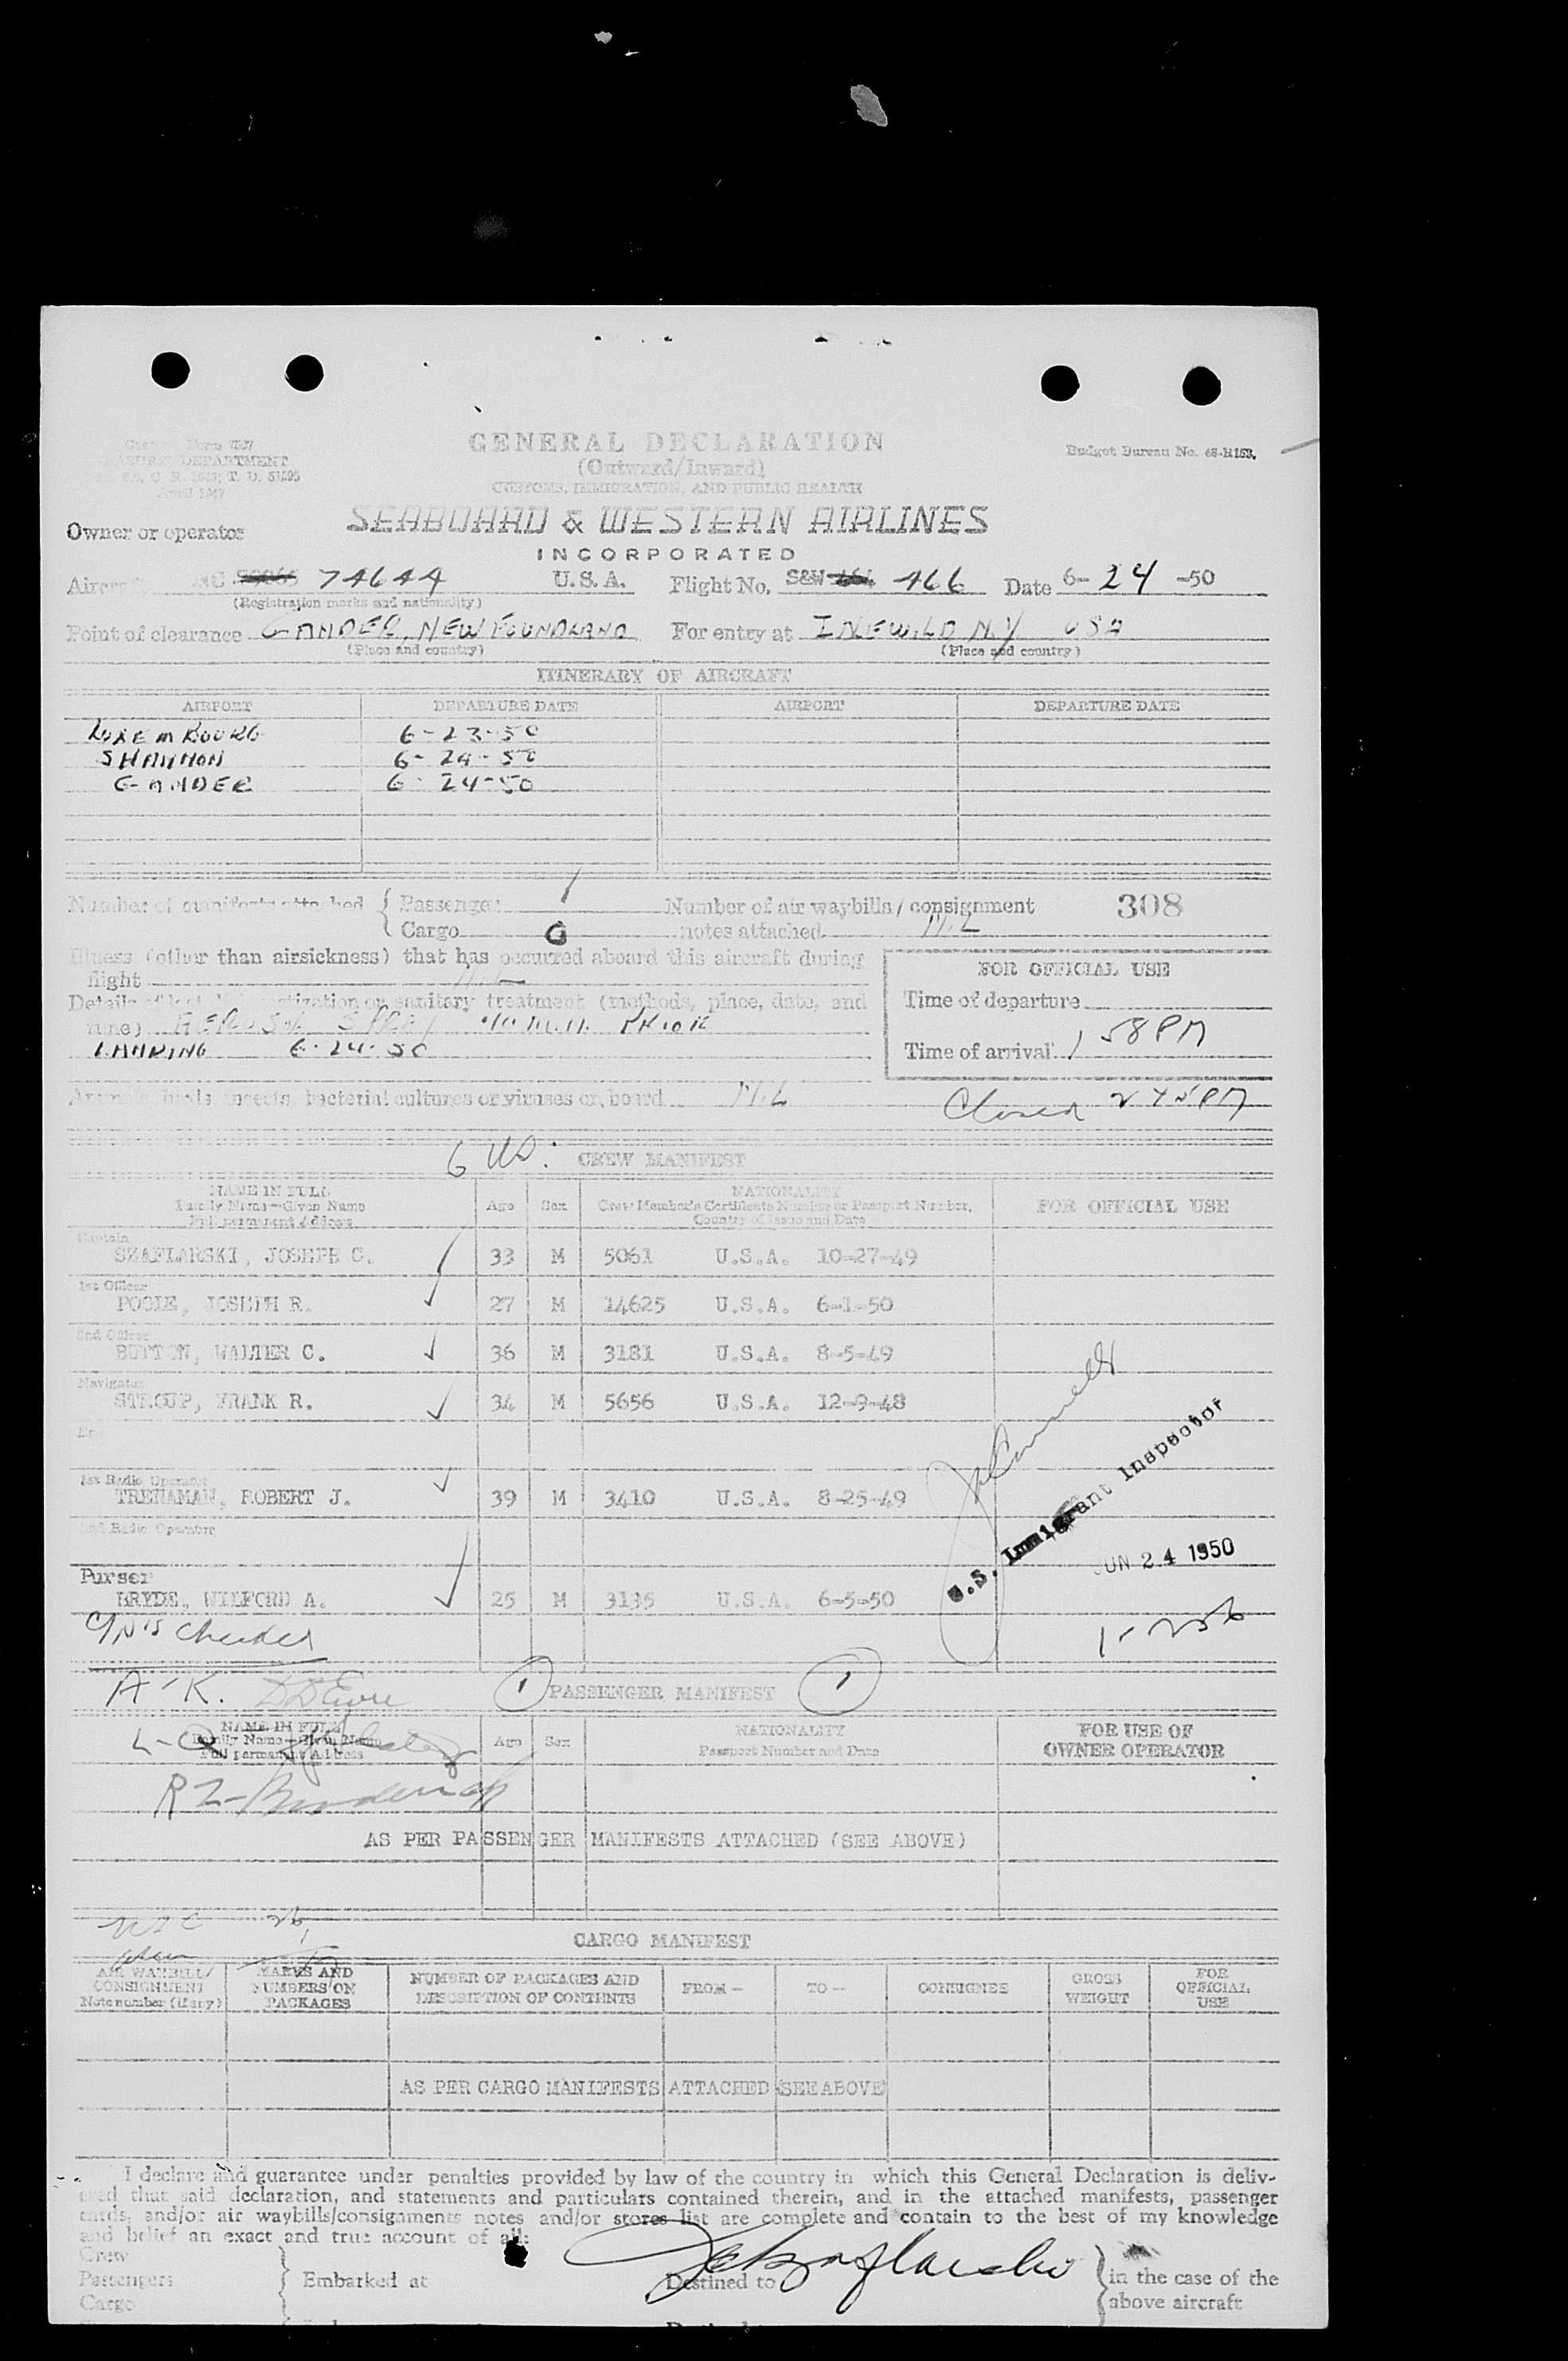 GENERAL DECLARATION
(Outward/Inward)
CUSTOMS, IMMIGRATION, AND PUBLIC HEALTH
Budget Bureau No. 48-R153.
DEPARTMENT
April 1947
Owner or operator
SEABOARD & WESTERN AIRLINES
INCORPORATED
Aircraft NC 74644 U.S.A. Flight No. S&W 466 Date 6-24-50
(Registration marks and nationality)
Point of clearance GANDER, NEWFOUNDLAND For entry at IDLEWILD N.Y USA
(Place and country) (Place and country)
ITINERARY OF AIRCRAFT
AIRPORT DEPARTURE DATE AIRPORT DEPARTURE DATE
LUXEMBOURG 6-23-50
SHANNON 6-24-50
GANDER 6-24-50
Number of manifests attached { Passenger 1 Number of air waybills/consignment 308
Cargo 0 notes attached NIL
Illness (other than airsickness) that has occurred aboard this aircraft during
flight NIL
FOR OFFICIAL USE
Time of departure
Details of last disinsectization or sanitary treatment (methods, place, date, and
time) AEROSOL SPRAY 40 MIN PRIOR
LANDING 6-24-50
Time of arrival 1 58 PM
Animals, birds, insects, bacterial cultures or viruses on board NIL
Closed 2 45 PM
6 US. CREW MANIFEST
NAME IN FULL
Family Name—Given Name
Full permanent Address
Age Sex
NATIONALITY
Crew Member's Certificate Number or Passport Number,
Country of Issue and Date
FOR OFFICIAL USE
Captain
SZAFLARSKI, JOSEPH C. 33 M 5061 U.S.A. 10-27-49
1st Officer
POOLE, JOSEPH R. 27 M 14625 U.S.A. 6-1-50
2nd Officer
BUTTON, WALTER C. 36 M 3181 U.S.A. 8-5-49
Navigator
STROUP, FRANK R. 34 M 5656 U.S.A. 12-9-48
Eng
1st Radio Operator
TRENAMAN, ROBERT J. 39 M 3410 U.S.A. 8-25-49
2nd Radio Operator
Purser
BRYDE, WILFORD A. 25 M 3135 U.S.A. 6-5-50
U.S. Immigrant Inspector
JUN 24 1950
1-256
Checked
A-K.
1 PASSENGER MANIFEST 1
NAME IN FULL
Family Name—Given Name
Full permanent Address
Age Sex
NATIONALITY
Passport Number and Date
FOR USE OF
OWNER OPERATOR
L-Q
RZ-
AS PER PASSENGER MANIFESTS ATTACHED (SEE ABOVE)
CARGO MANIFEST
AIR WAYBILL/
CONSIGNMENT
Note number (if any)
MARKS AND
NUMBERS ON
PACKAGES
NUMBER OF PACKAGES AND
DESCRIPTION OF CONTENTS
FROM—
TO—
CONSIGNEE
GROSS
WEIGHT
FOR
OFFICIAL
USE
AS PER CARGO MANIFESTS ATTACHED (SEE ABOVE
I declare and guarantee under penalties provided by law of the country in which this General Declaration is deliv-
ered that said declaration, and statements and particulars contained therein, and in the attached manifests, passenger
cards, and/or air waybills/consignments notes and/or stores list are complete and contain to the best of my knowledge
and belief an exact and true account of all:
Crew
Passengers } Embarked at Destined to } in the case of the
Cargo above aircraft